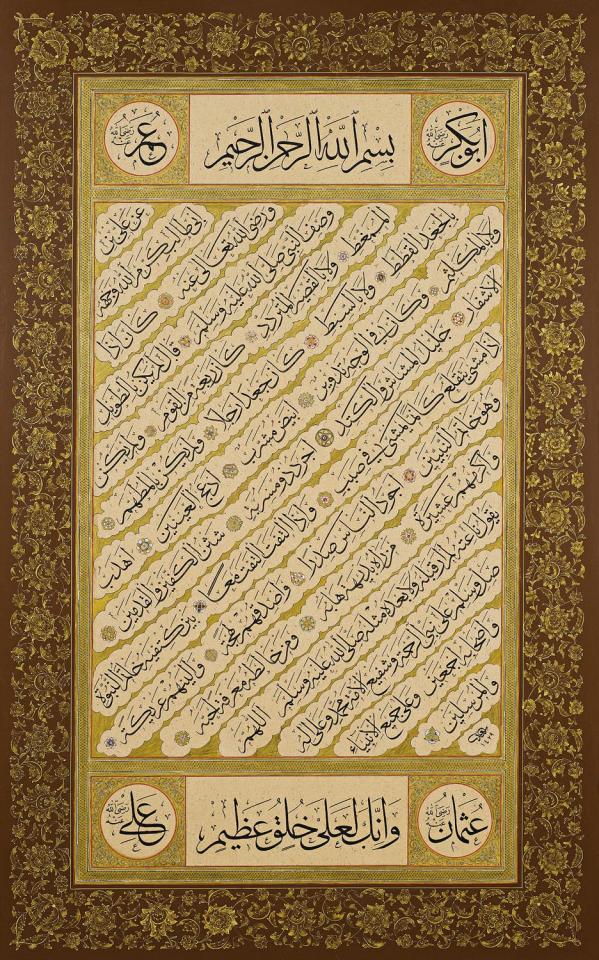 بسم الله الرحمن الرحيم
ابو بكر رضي الله عنه
عمر رضي الله عنه
عن علي بن
ابي طالب كرم الله وجهه
ورضي الله تعالى عنه كان اذا
وصف النبي صلى الله عليه وسلم قال لم يكن بالطويل
الممغط ولا بالقصير المتردد كان ربعة من القوم ولم يكن
بالجعد القطط ولا بالسبط كان جعدا رجلا ولم يكن بالمطهم
ولا بالمكلثم وكان في الوجه تدوير ابيض مشرب ادعج العينين اهدب
الاشفار جليل المشاش والكتد اجرد ذو مسربة شثن الكفين والقدمين
اذا مشى يتقلع كانما يمشي في صبب واذا التفت التفت معا بين كتفيه خاتم النبوة
وهو خاتم النبيين اجود الناس صدرا واصدقهم لهجة والينهم عريكة
واكرمهم عشيرة من رآه بديهة هابه ومن خالطه معرفة احبه
يقول ناعته لم ار قبله ولا بعده مثله صلى الله عليه وسلم اللهم
صل وسلم على نبي الرحمة وشفيع الامة محمد وعلى آله
واصحابه اجمعين وعلى جميع الانبياء
والمرسلين
وانك لعلى خلق عظيم
عثمان رضي الله عنه
علي رضي الله عنه